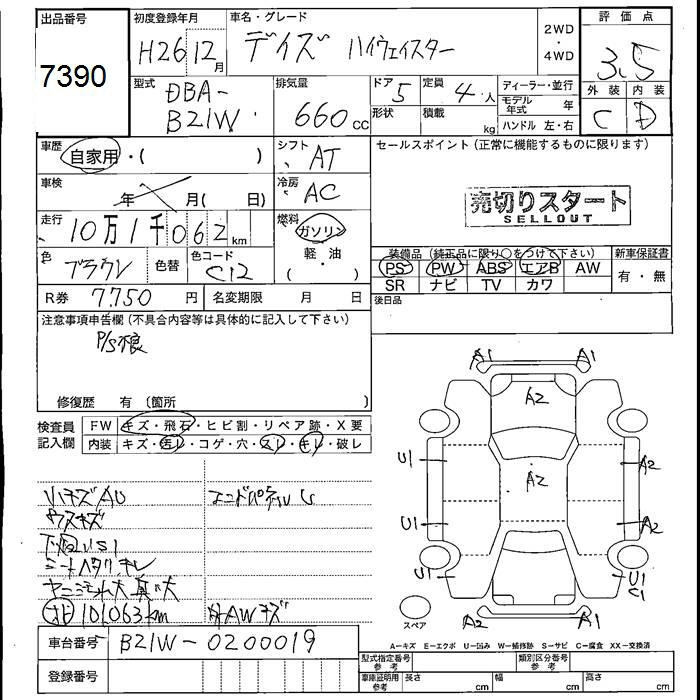 出品番号 初度登録年月 車名・グレード 2WD・4WD 評価点
7390 H26 12月 デイズ ハイウェイスター 3.5
型式 DBA-B21W 排気量 660cc ドア 5 定員 4人 ディーラー・並行 外装 内装
形状 積載 kg モデル年式 年 C D
ハンドル 左・右
車歴 自家用・( ) シフト AT セールスポイント (正常に機能するものに限ります)
車検 年 月( 日) 冷房 AC 売切りスタート
SELLOUT
走行 10万1千062km 燃料 ガソリン・軽・油( )
色 ブラウン 色替 色コード C12 装備品 (純正品に限り○をつけて下さい) 新車保証書
PS PW ABS エアB AW 有・無
SR ナビ TV カワ
R券 7,750円 名変期限 月 日 後日品
注意事項申告欄(不具合内容等は具体的に記入して下さい)
P/S根
修復歴 有 (箇所 )
検査員記入欄 FW キズ・飛石・ヒビ割・リペア跡・X要
内装 キズ・汚レ・コゲ・穴・スレ・キレ・破レ
小キズAU
ウスキズ
下回りS1
シートヘタリ キレ
101,063km AWキズ
A1 A1
A2
U1 A2
A2
U1 A2
U1 U1
C1
A2 A1
スペア
A=キズ E=エクボ U=凹み W=補修跡 S=サビ C=腐食 XX=交換済
車台番号 B21W-0200019
登録番号
型式指定番号 参考 類別区分番号 参考
車庫証明用 参考 長さ cm 幅 cm 高さ cm